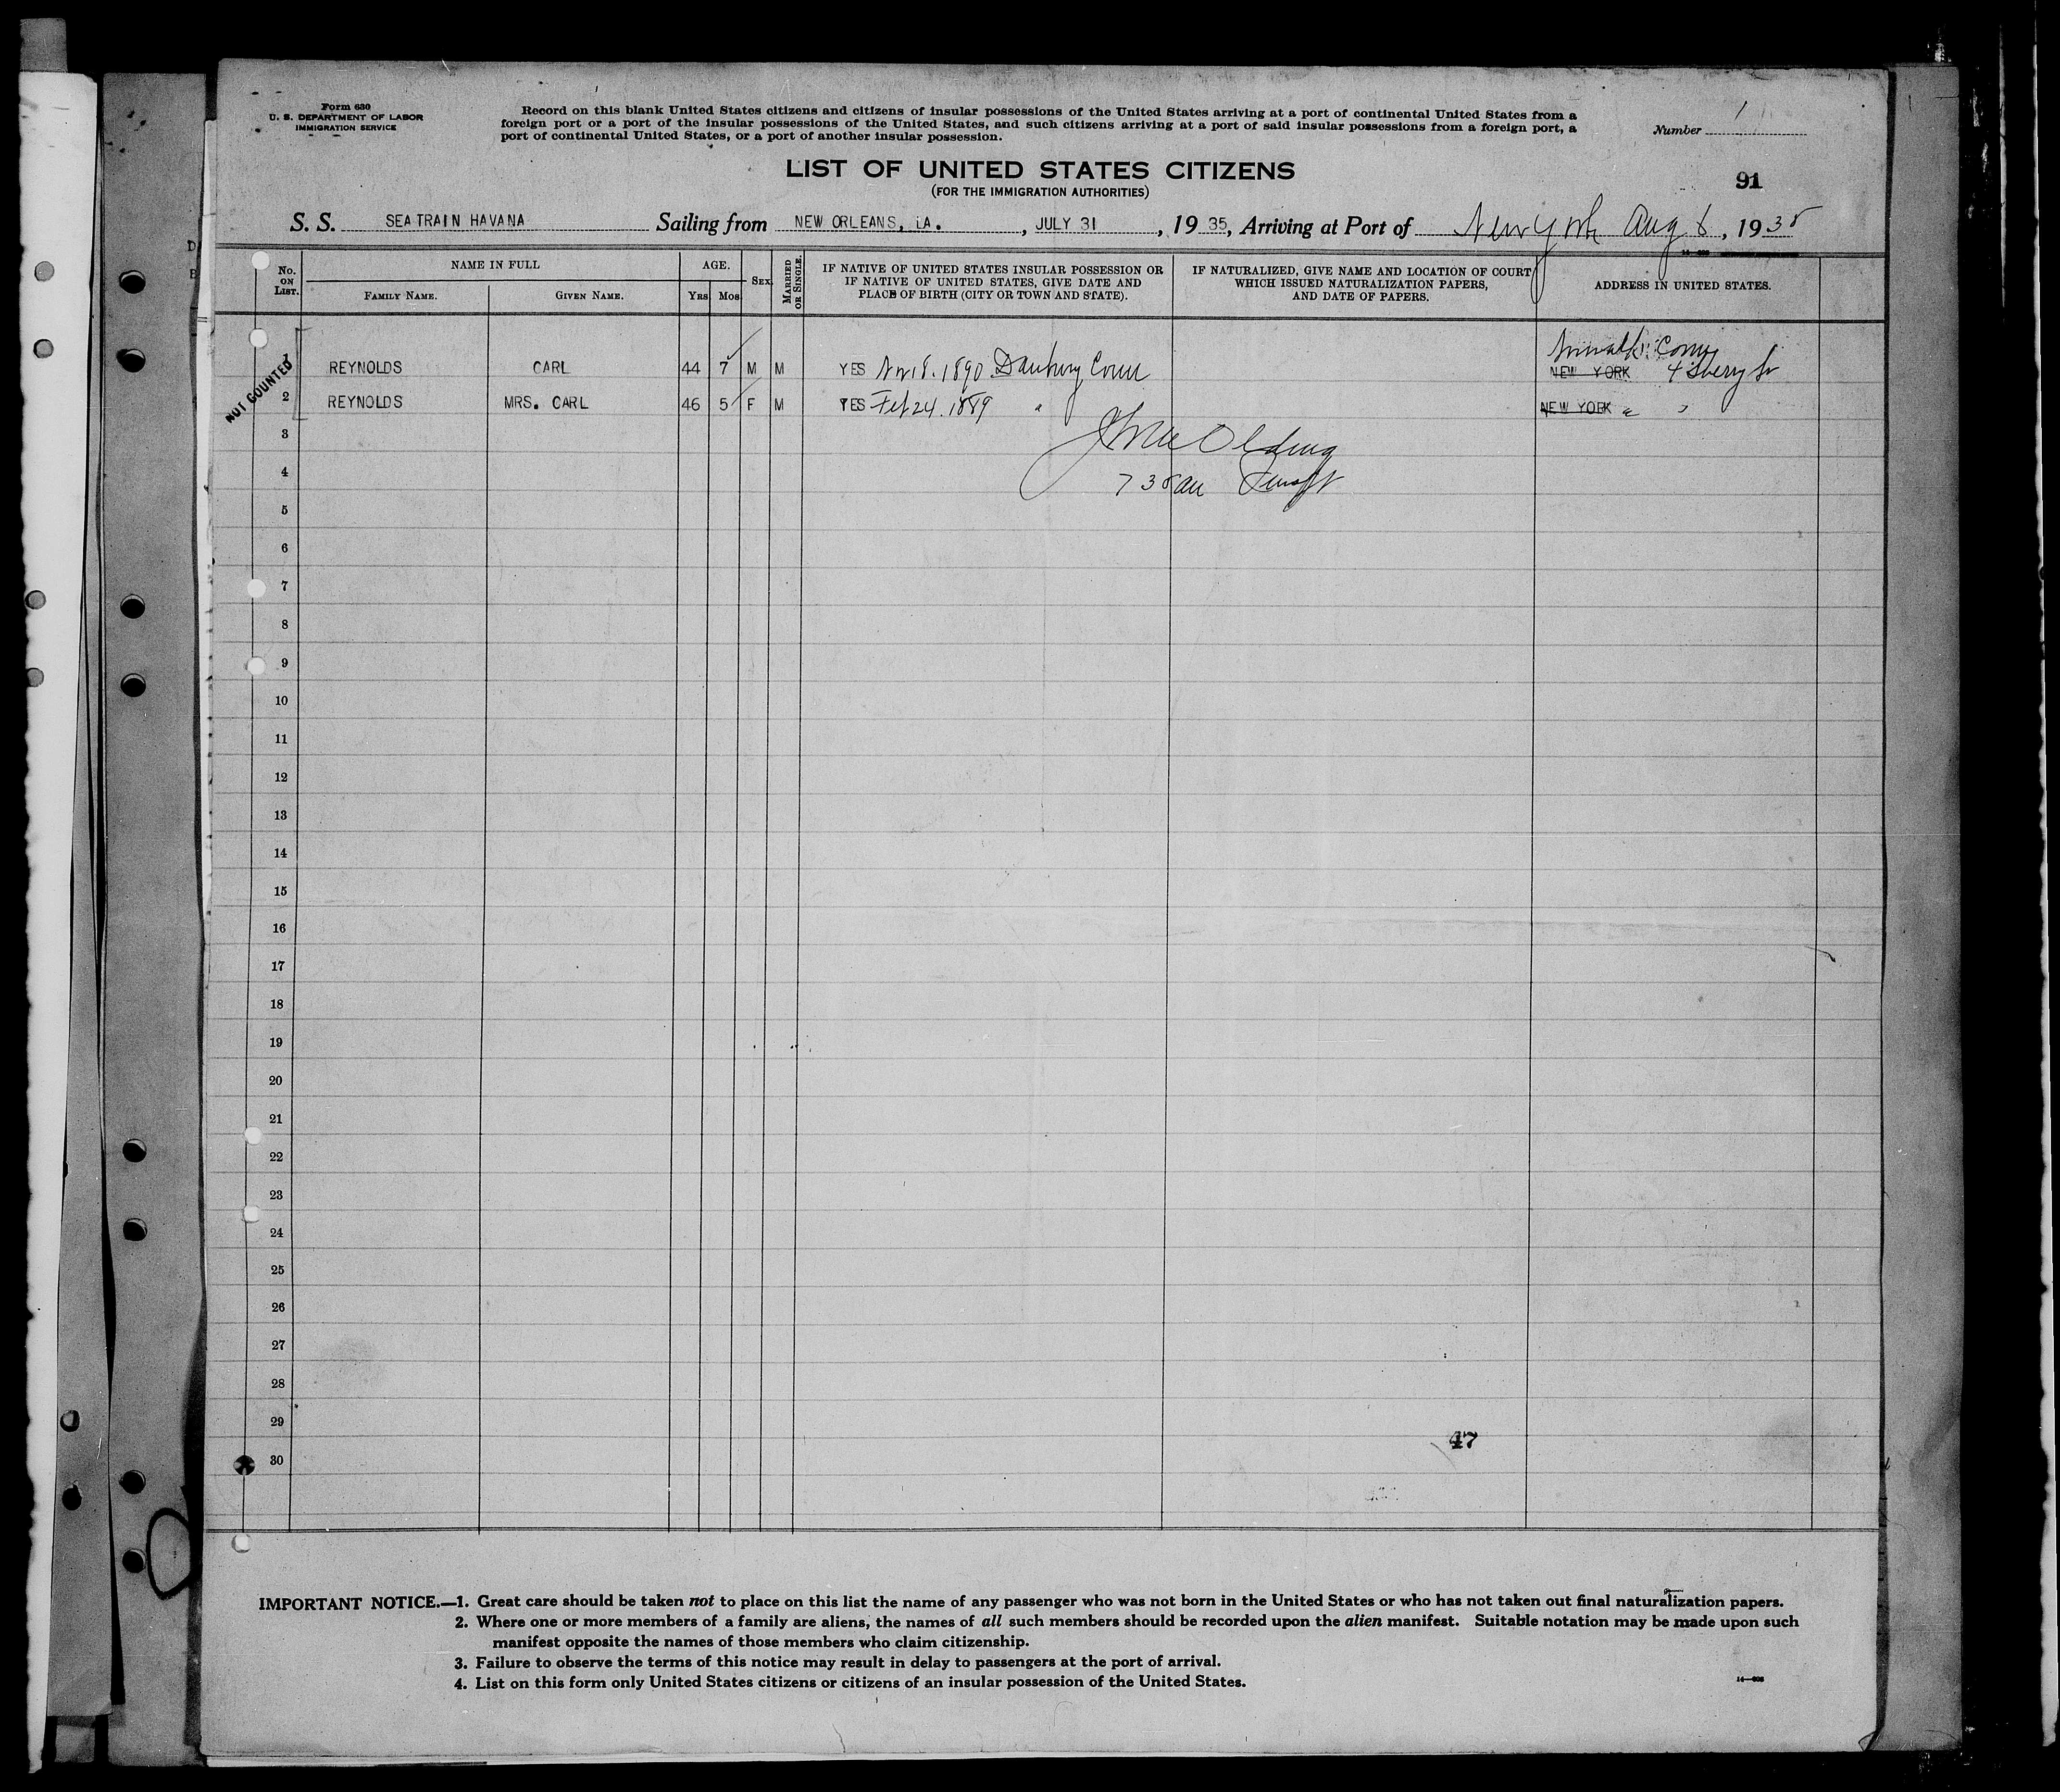 Form 630
U. S. DEPARTMENT OF LABOR
IMMIGRATION SERVICE
Record on this blank United States citizens and citizens of insular possessions of the United States arriving at a port of continental United States from a
foreign port or a port of the insular possessions of the United States, and such citizens arriving at a port of said insular possessions from a foreign port, a
port of continental United States, or a port of another insular possession.
Number 1
LIST OF UNITED STATES CITIZENS
(FOR THE IMMIGRATION AUTHORITIES)
91
S. S. SEATRAIN HAVANA Sailing from NEW ORLEANS, LA. , JULY 31 , 19 35, Arriving at Port of New York Aug 6, 19 35
No. ON LIST. NAME IN FULL FAMILY NAME. GIVEN NAME. AGE. Yrs Mos SEX MARRIED OR SINGLE.
IF NATIVE OF UNITED STATES INSULAR POSSESSION OR
IF NATIVE OF UNITED STATES, GIVE DATE AND
PLACE OF BIRTH (CITY OR TOWN AND STATE).
IF NATURALIZED, GIVE NAME AND LOCATION OF COURT
WHICH ISSUED NATURALIZATION PAPERS,
AND DATE OF PAPERS.
ADDRESS IN UNITED STATES.
NOT COUNTED
Norwalk Conn
1 REYNOLDS CARL 44 7 M M YES Nov 8. 1890 Danbury Conn NEW YORK 4
2 REYNOLDS MRS. CARL 46 5 F M YES Feb 24. 1889 " NEW YORK " "
3
4 7 35 am
5
6
7
8
9
10
11
12
13
14
15
16
17
18
19
20
21
22
23
24
25
26
27
28
29
47
30
IMPORTANT NOTICE.—1. Great care should be taken not to place on this list the name of any passenger who was not born in the United States or who has not taken out final naturalization papers.
2. Where one or more members of a family are aliens, the names of all such members should be recorded upon the alien manifest. Suitable notation may be made upon such
manifest opposite the names of those members who claim citizenship.
3. Failure to observe the terms of this notice may result in delay to passengers at the port of arrival.
4. List on this form only United States citizens or citizens of an insular possession of the United States.